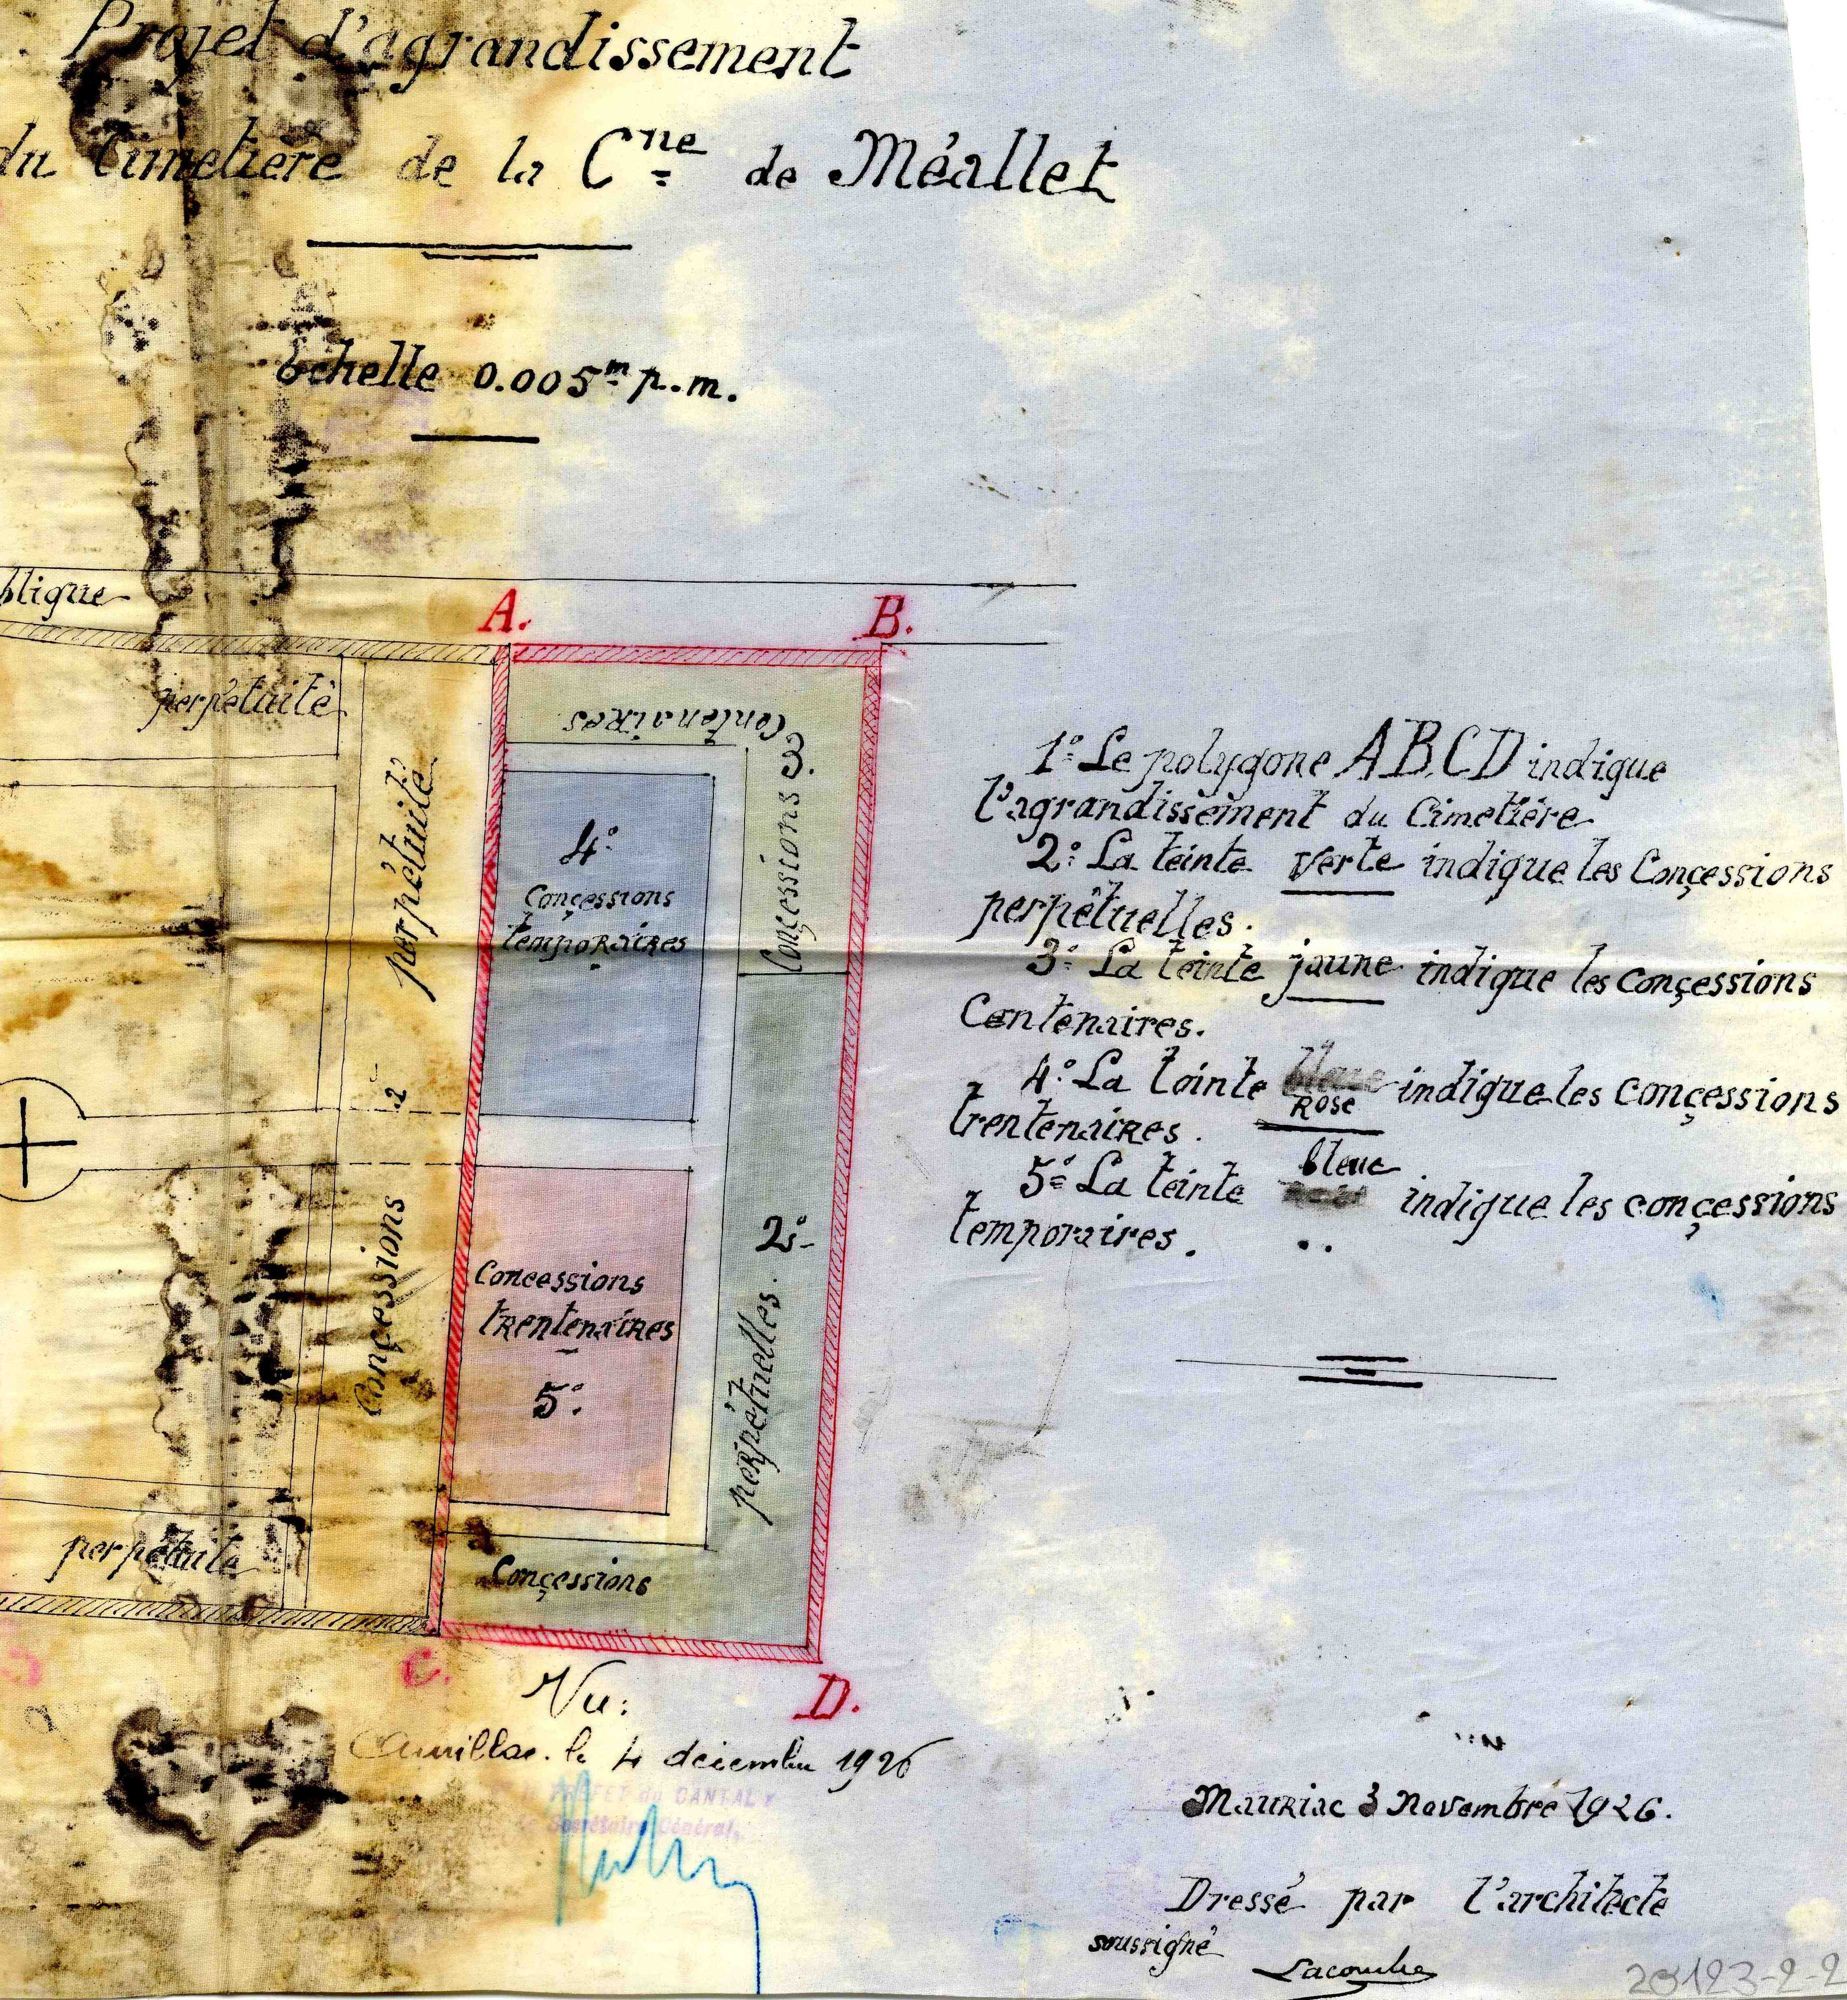 Projet d'agrandissement
du Cimetière de la Cne de Méallet
Echelle 0.005m p.m.
blique
A.
B.
perpétuité
perpétuité
2
Concessions
Centenaires
Conçessions 3.
4°
Conçessions
temporaires
Concessions
trentenaires
5°
perpétuelles. 2°
Conçessions
perpétuité
C.
D.
1° Le polygone ABCD indique
l'agrandissement du Cimetière
2° La teinte verte indique les Conçessions
perpétuelles.
3° La teinte jaune indique les conçessions
Centenaires.
4° La teinte bleue indique les conçessions
Rose
trentenaires.
bleue
5° La teinte indique les conçessions
temporaires.
Vu:
Aurillac. le 4 décembre 1926
PREFET du CANTAL
Secrétaire Général,
Mauriac 3 Novembre 1926.
Dressé par l'architecte
soussigné
Lacombe
20123-2-2